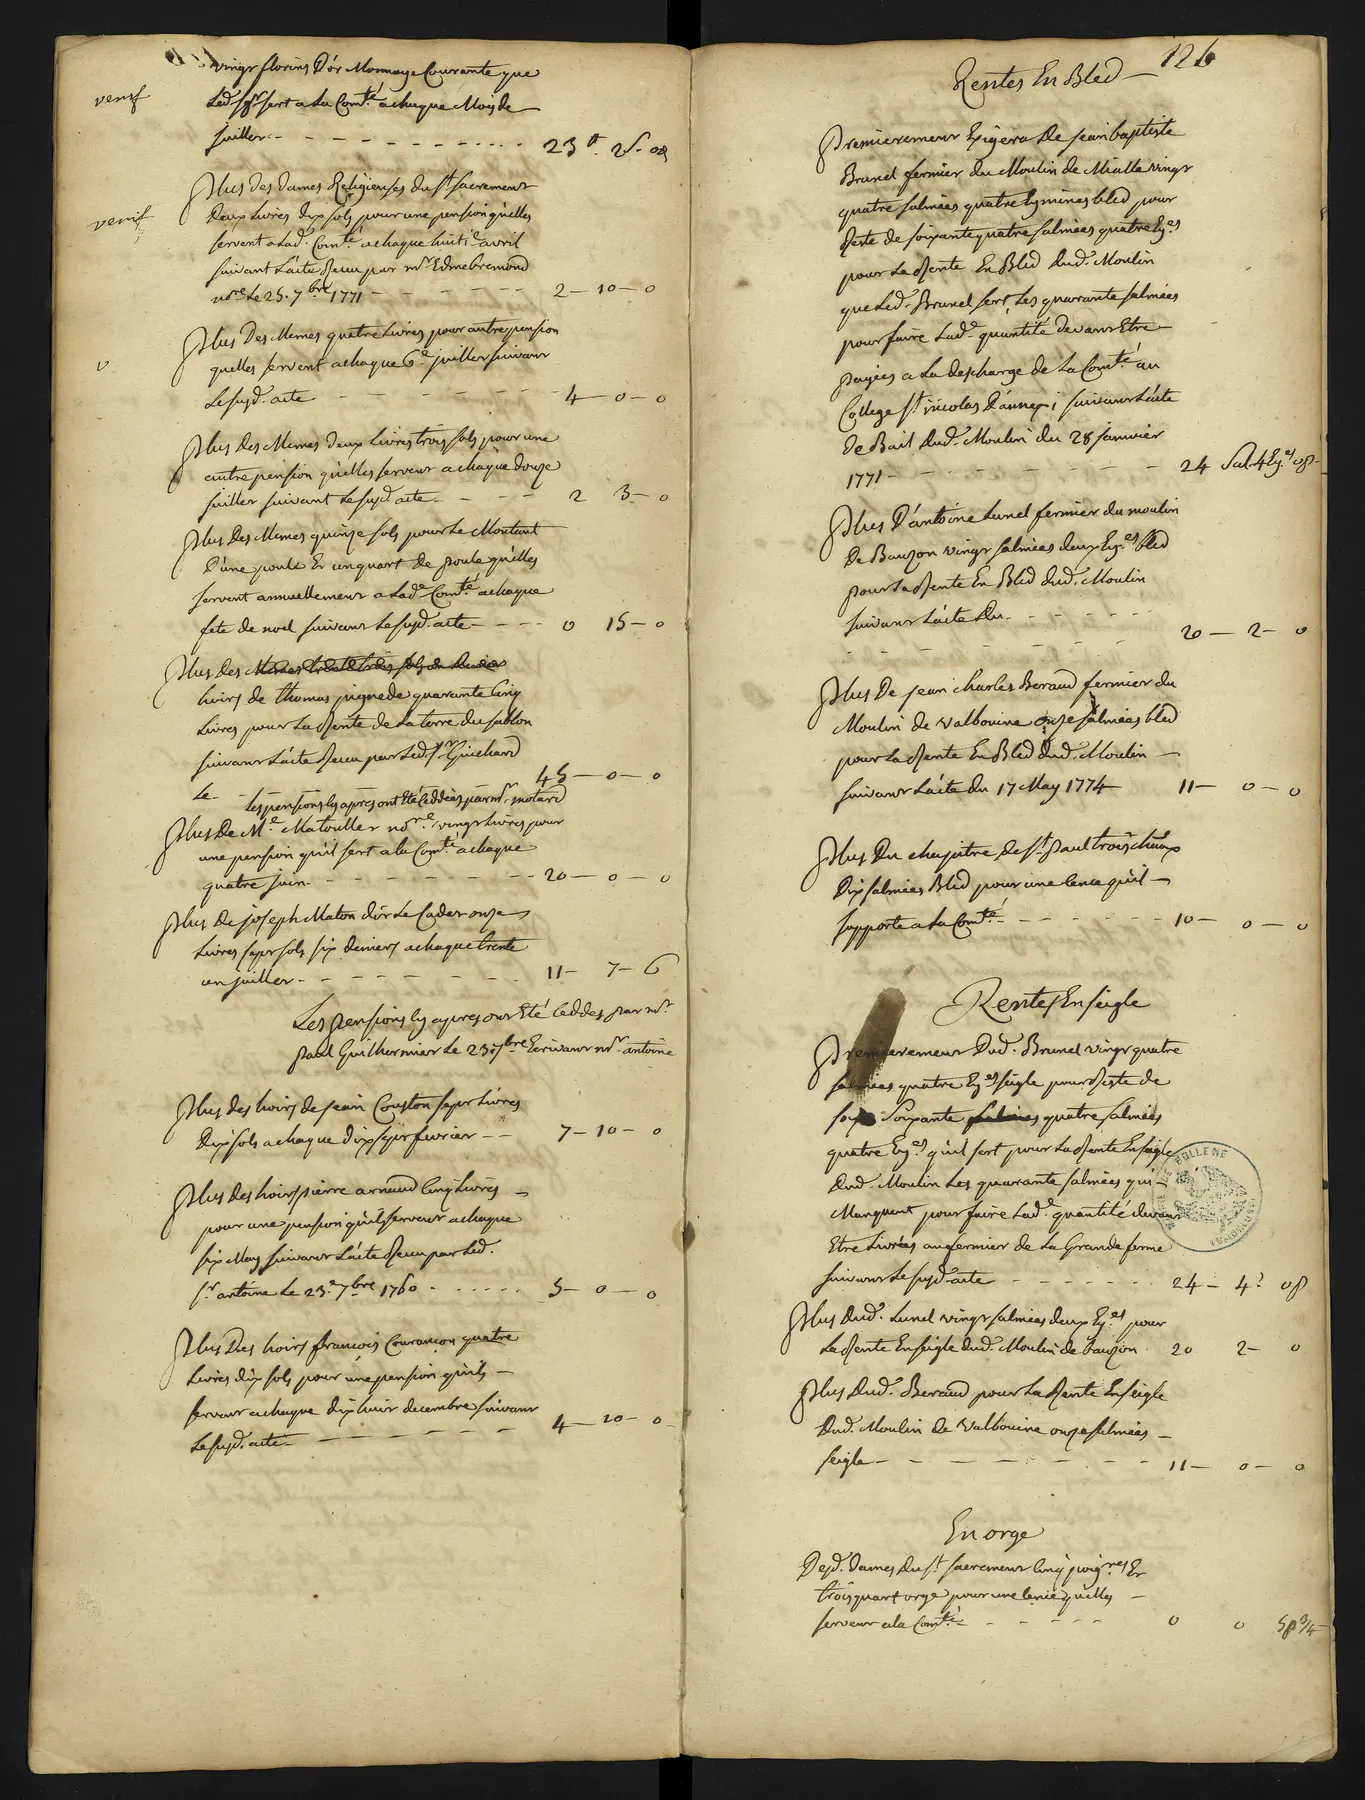 vingt florins D'or Monnoye Courante que
Led. sr. sert a La Comté. a chaque Mois de
Juillet - - - - - - - - - 23 tt. 2 s. 08
verif
Plus Des Dames Religieuses du st. sacrement
Deux Livres dix sols pour une pension qu'elles
servent a Lad. Comté. a chaque huit e. avril
suivant L'acte Receu par mr. Edmebremond
nore. Le 25. 7bre. 1771 - - - - - - 2 - 10 - 0
verif
Plus Des Memes quatre Livres pour autre pension
quelles servent a chaque 6e. juillet suivant
Le susd. acte - - - - - - - 4 - 0 - 0
v
Plus Des Memes Deux Livres trois sols pour une
autre pension quelles servent a chaque douze
juillet suivant Le susd. acte - - - - 2 3 - 0
Plus Des Memes quinze sols pour Le Montant
D'une poule Et un quart de poule qu'elles
servent annuellement a Lade. Comté. a chaque
fete de noel suivant Le susd. acte - - - - 0 15 - 0
Plus des
hoirs de thomas pignede quarante Cinq
Livres pour La Rente de La terre du sablon
suivant L'acte Receu par Led. sr. Guichard
Le - 45 - 0 - 0
Les pensions cy apres ont été Ceddées par mr. motard
Plus De Me. Matoullet nore. vingt Livres pour
une pension qu'il sert a la Comté. a chaque
quatre juin - - - - - - - 20 - 0 - 0
Plus De joseph Maton dit Le Cadet onze
Livres sept sols six deniers a chaque trente
un juillet - - - - - - 11 - 7 - 6
Les pensions cy apres ont Eté Ceddes par mr.
paul Guilhermier Le 23 7bre Ecrivant mr. antoine
Plus des hoirs de jean Couston sept Livres
Dix sols a chaque dix sept fevrier - - 7 - 10 - 0
Plus des hoirs pierre arnaud Cinq Livres -
pour une pension qu'ils servent a chaque
six May suivant L'acte Receu par Led.
sr. antoine Le 23e. 7bre 1760 - - - - - 5 - 0 - 0
Plus Des hoirs francois Courancon quatre
Livres dix sols pour une pension qu'ils -
servent a chaque dix huit decembre suivant
Le susd. acte - - - - - - - 4 - 10 - 0
126
Rentes En Bled -
Premierement Exigera De jean baptiste
Brunel fermier du Moulin de Mialle vingt
quatre salmées quatre Eymines bled pour
Reste de soixante quatre salmées quatre Eyes.
pour La Rente En Bled dud. Moulin
que Led. Brunel sert, Les quarante salmées
pour faire Lade. quantité devant Etre -
payées a La descharge de La Comté. au
College st. nicolas D'annecy suivant L'acte
de Bail dud. Moulin du 28 janvier
1771 - - - - - - - 24 Sal. 4 Eyes. 0 p -
Plus D'antoine Lunel fermier du moulin
De Bauzon vingt salmées deux Eyes. bled
pour La Rente En Bled dud. Moulin
suivant L'acte du - - - - -
- - - - - - - 20 - 2 - 0
Plus De jean charles Beraud fermier du
Moulin de valbouine onze salmées bled
pour La Rente En Bled dud. Moulin -
suivant L'acte du 17 May 1774 11 - 0 - 0
Plus Du chapitre de st. paul trois chateaux
Dix salmées Bled pour une Cence qu'il -
supporte a La Comté. - - - - - 10 - 0 - 0
Rentes En seigle
Premierement Dud. Brunel vingt quatre
salmées quatre Eyes. seigle pour Reste de
soixante quatre salmées
quatre Eyes. qu'il sert pour La Rente En seigle
Dud. Moulin Les quarante salmées qui -
Manquent pour faire Lade. quantité devant
Etre Livrées au fermier de La Grande ferme
suivant Le susd. acte - - - - - 24 - 4 0 p
Plus Dud. Lunel vingt salmées deux Eyes. pour
La Rente En seigle dud. Moulin de bauzon - 20 2 - 0
Plus Dud. Beraud pour La Rente En seigle
Dud. Moulin de valbouine onze salmées -
seigle - - - - - - - - 11 - 0 - 0
En orge
Desd. Dames du st. sacrement Cinq poignes. Et
trois quart orge pour une Cence quelles -
servent a la Comté. - - - - - 0 0 5 p 3/4
BOLLENE